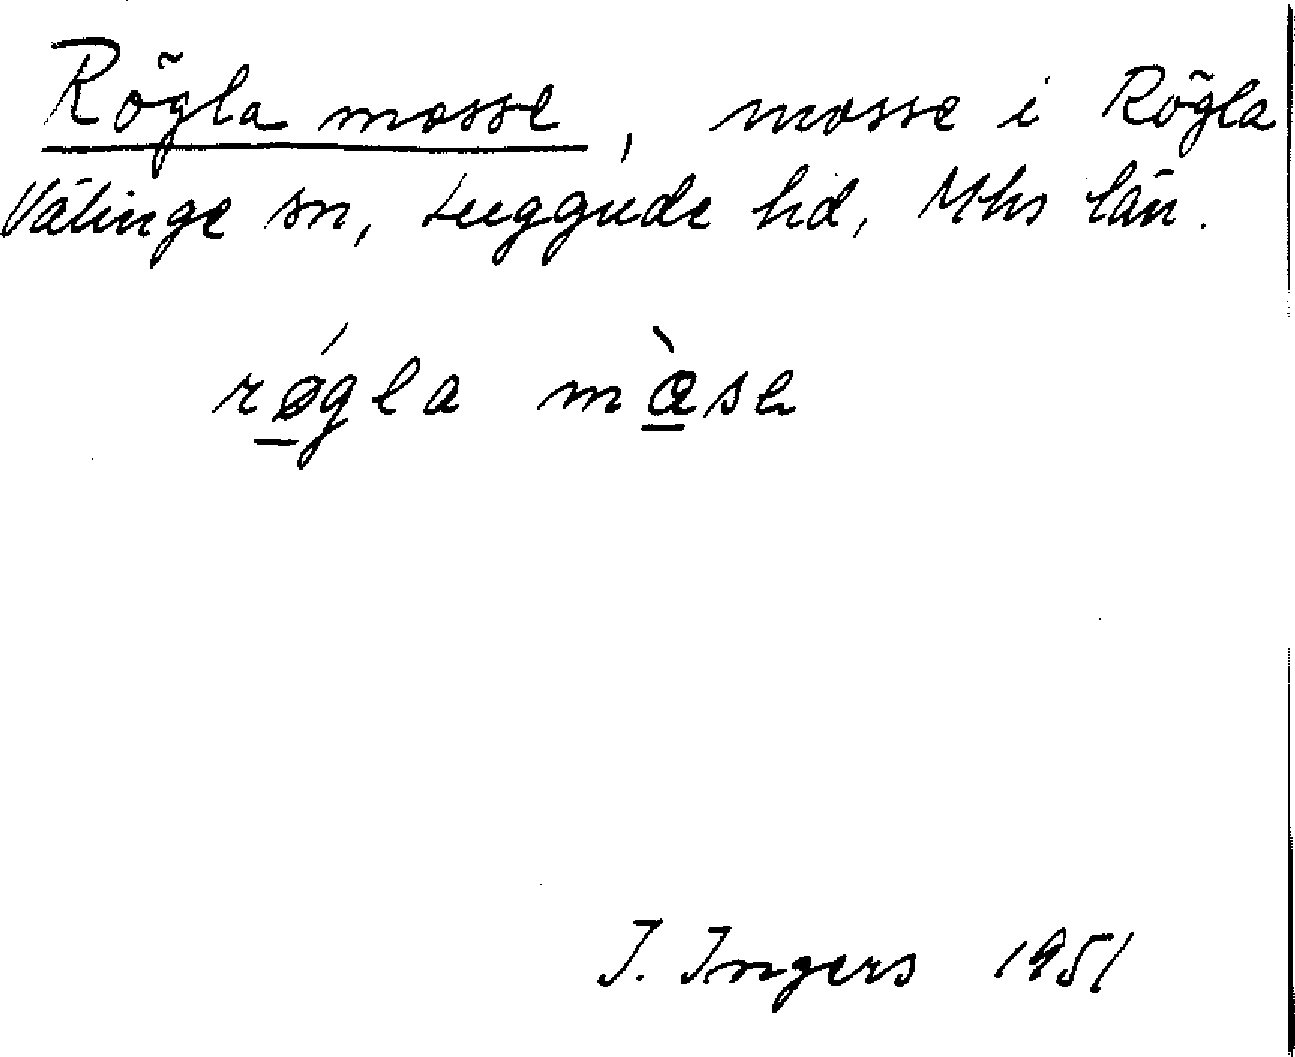 Rögla mosse, mosse i Rögla
Välinge sn, Luggude hd, Mhs län.
rǿgla mòsa
I. Ingers 1951